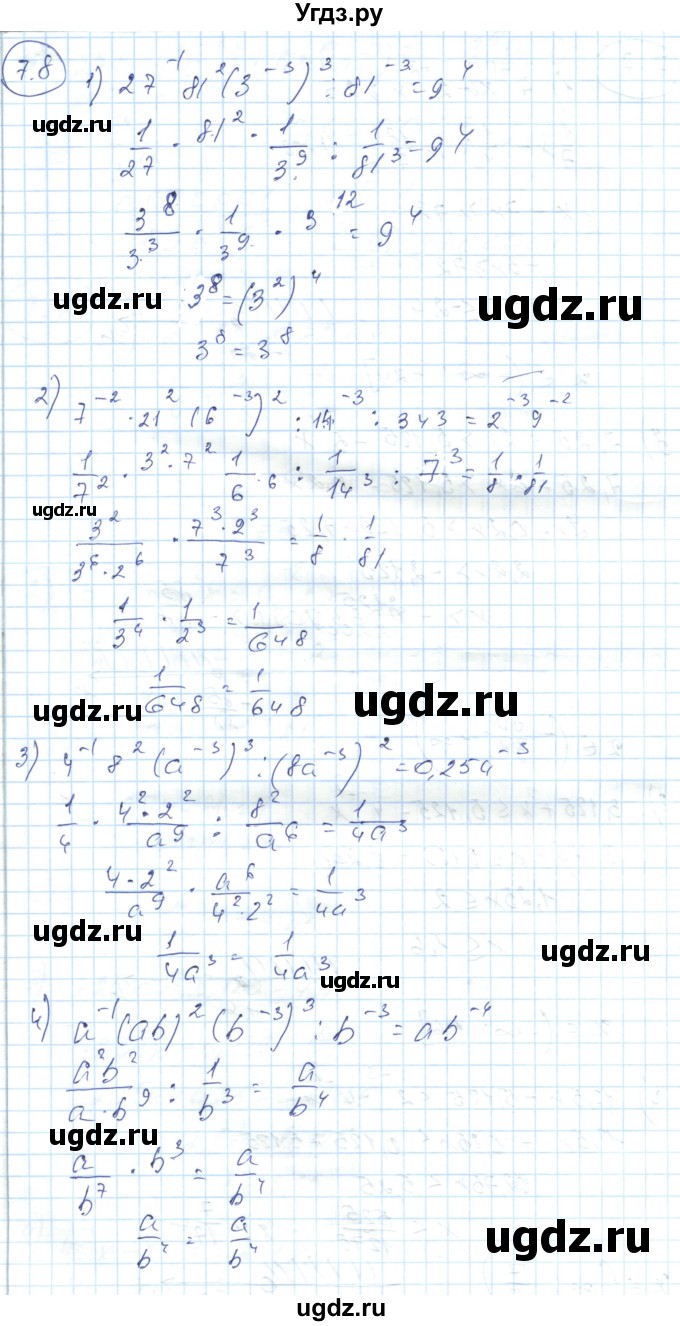 Угдз.ру
7.8
1) 27⁻¹ 81² (3⁻³)³ : 81⁻³ = 9⁴
ugdz.ru
1/27 · 81² · 1/3⁹ : 1/81³ = 9⁴
3⁸/3³ · 1/3⁹ · 3¹² = 9⁴
ugdz.ru
3⁸ = (3²)⁴
ugdz.ru
3⁸ = 3⁸
2) 7⁻² · 21² (6⁻³)² : 14⁻³ : 343 = 2⁻³ 9⁻²
1/7² · 3² · 7² 1/6⁶ : 1/14³ : 7³ = 1/8 · 1/81
ugdz.ru
ugdz.ru
3²/3⁶·2⁶ · 7³·2³/7³ = 1/8 · 1/81
1/3⁴ · 1/2³ = 1/648
1/648 = 1/648
ugdz.ru
ugdz.ru
3) 4⁻¹ 8² (a⁻³)³ : (8a⁻³)² = 0,25a⁻³
1/4 · 4²·2²/a⁹ : 8²/a⁶ = 1/4a³
4·2²/a⁹ · a⁶/4²·2² = 1/4a³
ugdz.ru
1/4a³ = 1/4a³
ugdz.ru
ugdz.ru
4) a⁻¹ (ab)² (b⁻³)³ : b⁻³ = ab⁻⁴
a²b²/a·b⁹ : 1/b³ = a/b⁴
ugdz.ru
ugdz.ru
a/b⁷ · b³ = a/b⁴
a/b⁴ = a/b⁴
ugdz.ru
ugdz.ru